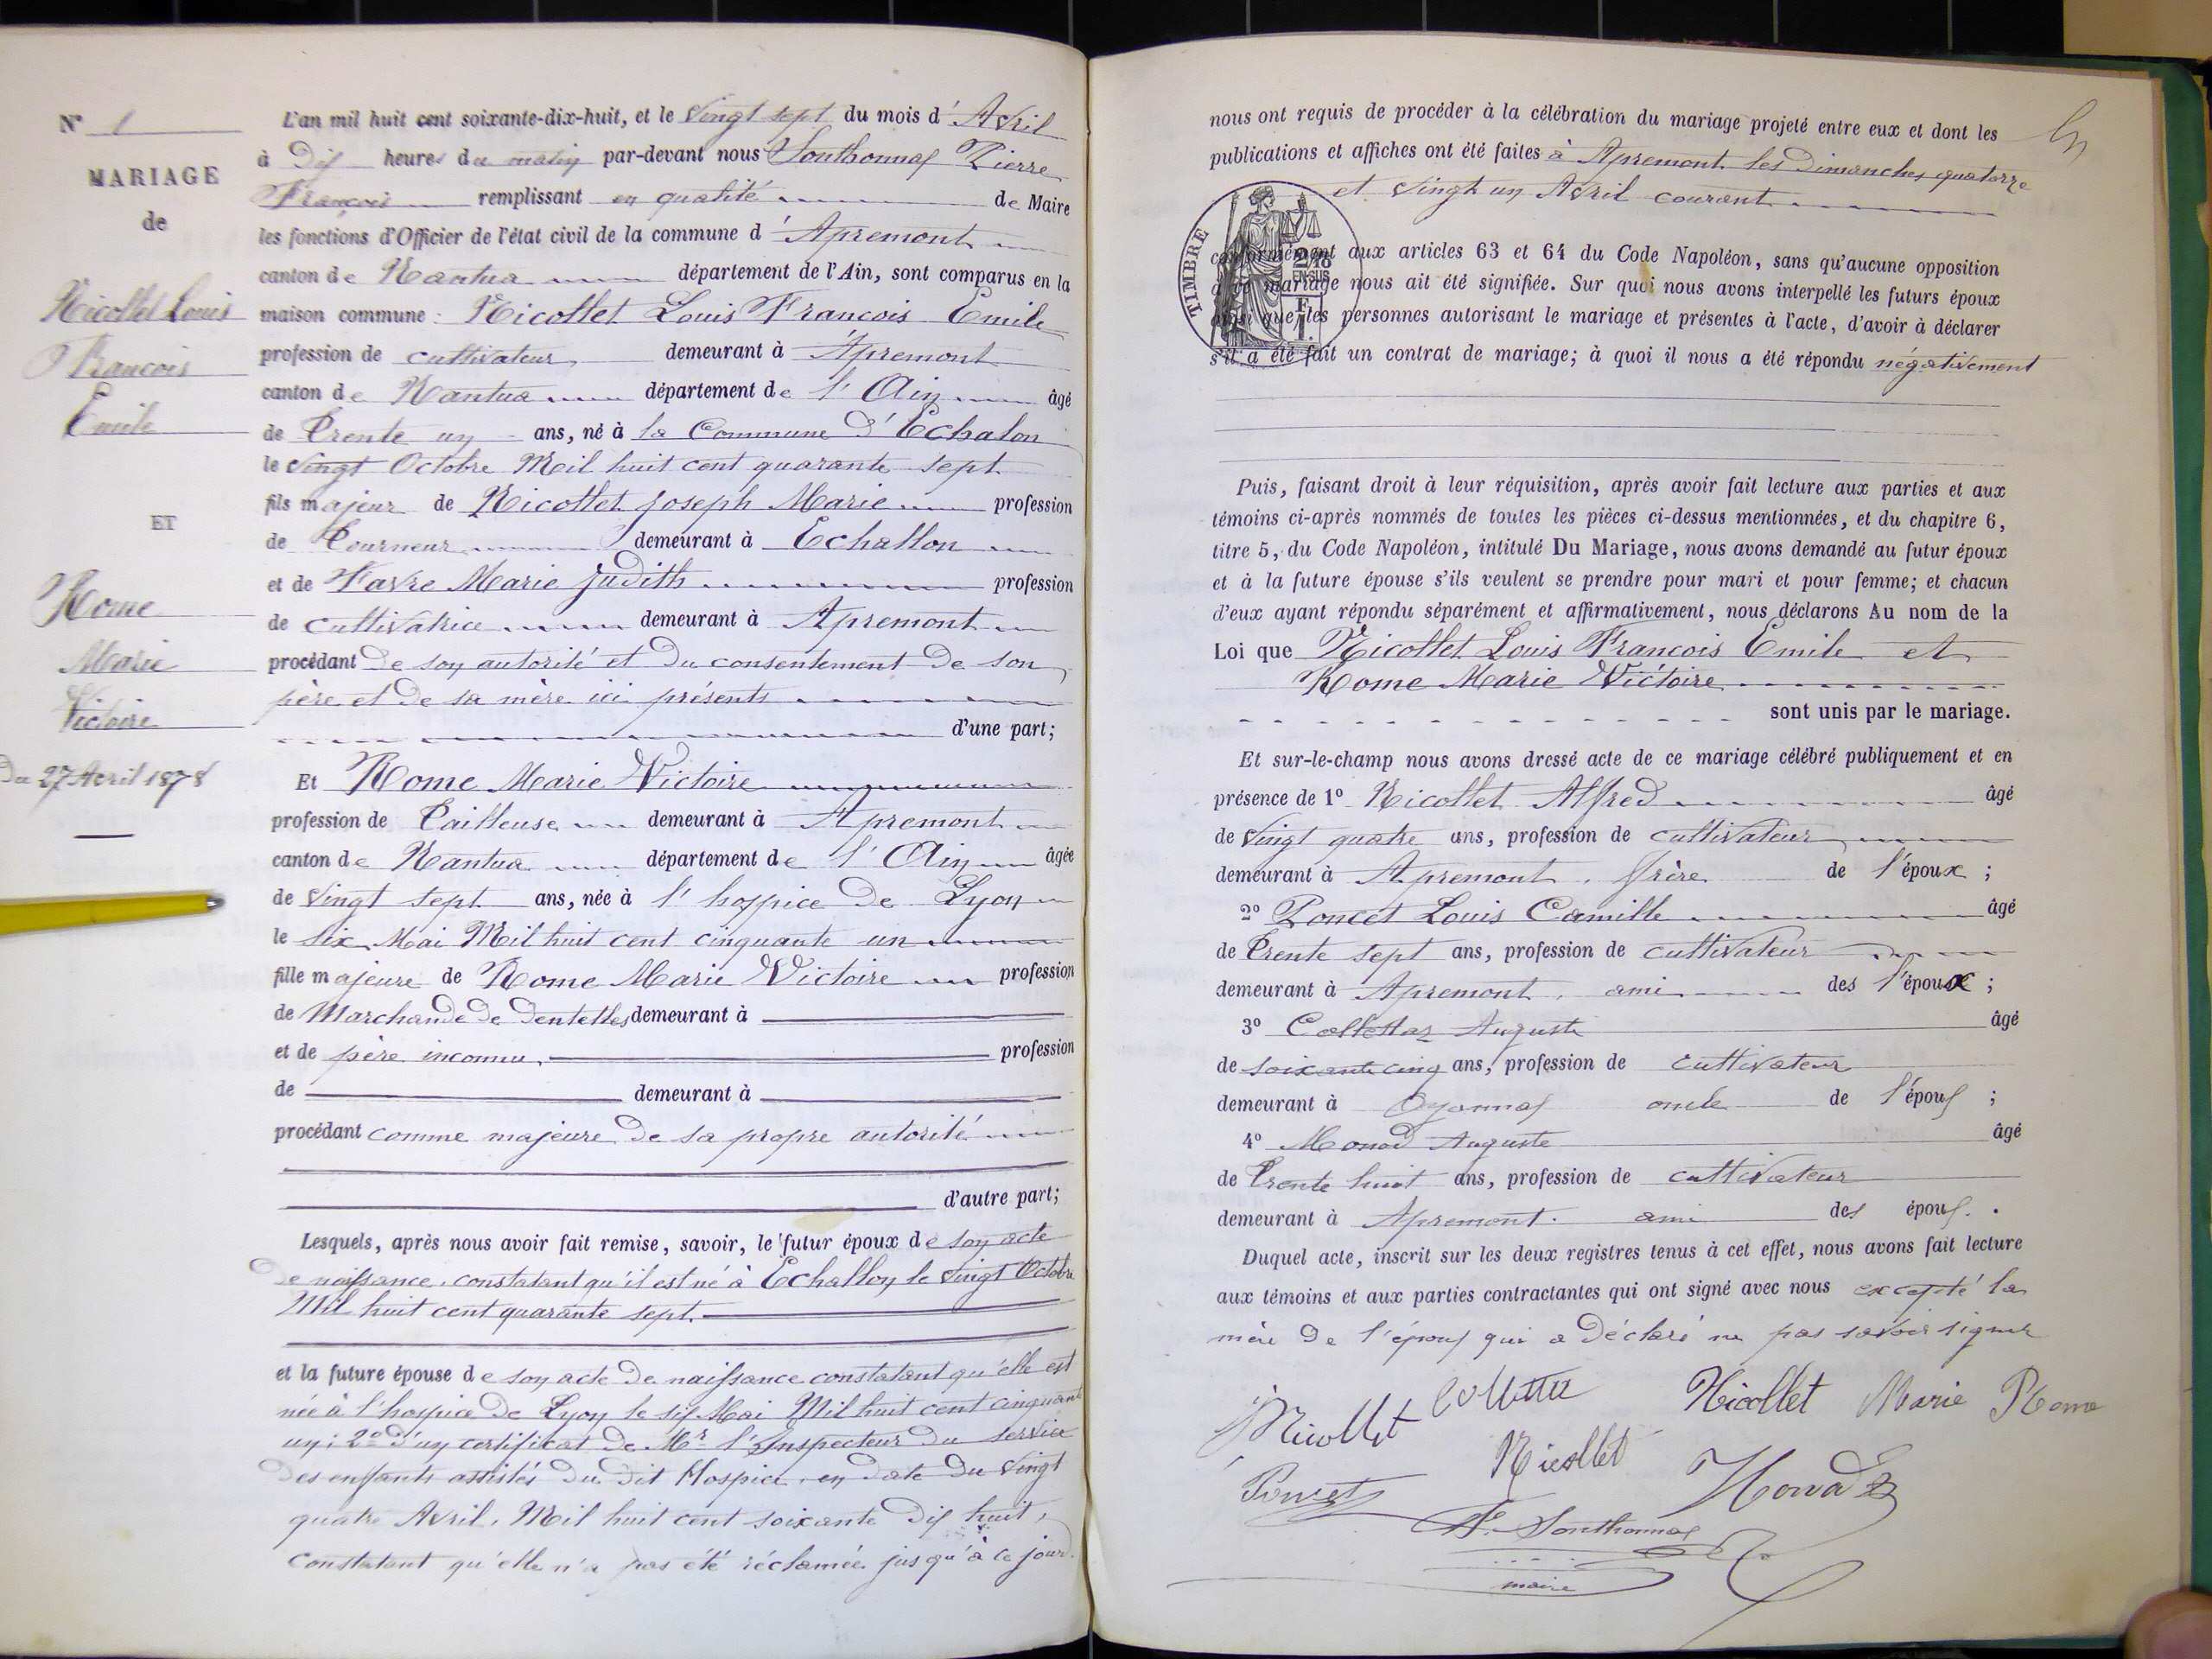 N° 1
MARIAGE
de
Nicollet Louis
Francois
Emile
ET
Rome
Marie
Victoire
Du 27 Avril 1878
L'an mil huit cent soixante-dix-huit, et le vingt sept du mois d'Avril
à Dix heures du matin par-devant nous Sonthonnax Pierre
François remplissant en qualité de Maire
les fonctions d'Officier de l'état civil de la commune d'Apremont
canton de Nantua département de l'Ain, sont comparus en la
maison commune : Nicollet Louis Francois Emile
profession de cultivateur, demeurant à Apremont
canton de Nantua département de l'Ain âgé
de Trente un ans, né à la Commune d'Echalon
le vingt Octobre Mil huit cent quarante sept
fils majeur de Nicollet joseph Marie profession
de Tourneur demeurant à Echallon
et de Favre Marie judith profession
de cultivatrice demeurant à Apremont
procédant de son autorité et du consentement de son
père et de sa mère ici présents
d'une part;
Et Rome Marie Victoire
profession de Tailleuse demeurant à Apremont
canton de Nantua département de l'Ain âgée
de vingt sept ans, née à l'hospice de Lyon
le six Mai Mil huit cent cinquante un
fille majeure de Rome Marie Victoire profession
de Marchande de dentelles demeurant à
et de père inconnu, profession
de demeurant à
procédant comme majeure de sa propre autorité
d'autre part;
Lesquels, après nous avoir fait remise, savoir, le futur époux de son acte
de naissance, constatant qu'il est né à Echallon le vingt Octobre
Mil huit cent quarante sept.
et la future épouse de son acte de naissance constatant qu'elle est
née à l'hospice de Lyon le six Mai Mil huit cent cinquante
un; 2° d'un certificat de Mr l'Inspecteur du service
des enfants assistés du dit Hospice, en date du vingt
quatre Avril, Mil huit cent soixante dix huit,
constatant qu'elle n'a pas été réclamée jusqu'à ce jour.
nous ont requis de procéder à la célébration du mariage projeté entre eux et dont les
publications et affiches ont été faites à Apremont les Dimanches quatorze
et vingt un Avril courant
TIMBRE
conformément aux articles 63 et 64 du Code Napoléon, sans qu'aucune opposition
à ce mariage nous ait été signifiée. Sur quoi nous avons interpellé les futurs époux
ainsi que les personnes autorisant le mariage et présentes à l'acte, d'avoir à déclarer
s'il a été fait un contrat de mariage; à quoi il nous a été répondu négativement
Puis, faisant droit à leur réquisition, après avoir fait lecture aux parties et aux
témoins ci-après nommés de toutes les pièces ci-dessus mentionnées, et du chapitre 6,
titre 5, du Code Napoléon, intitulé Du Mariage, nous avons demandé au futur époux
et à la future épouse s'ils veulent se prendre pour mari et pour femme; et chacun
d'eux ayant répondu séparément et affirmativement, nous déclarons Au nom de la
Loi que Nicollet Louis Francois Emile et
Rome Marie Victoire
sont unis par le mariage.
Et sur-le-champ nous avons dressé acte de ce mariage célébré publiquement et en
présence de 1° Nicollet Alfred âgé
de vingt quatre ans, profession de cultivateur
demeurant à Apremont, frère de l'époux ;
2° Poncet Louis Camille âgé
de Trente sept ans, profession de cultivateur
demeurant à Apremont, ami des l'époux ;
3° Auguste âgé
de soixante cinq ans, profession de cultivateur
demeurant à Oyonnax oncle de l'époux ;
4° Monod Auguste âgé
de Trente huit ans, profession de cultivateur
demeurant à Apremont. ami des époux.
Duquel acte, inscrit sur les deux registres tenus à cet effet, nous avons fait lecture
aux témoins et aux parties contractantes qui ont signé avec nous excepté la
mère de l'époux qui a déclaré ne pas savoir signer
Nicollet Nicollet Marie Rome
Nicollet
Poncet Monod
F. Sonthonnax
maire